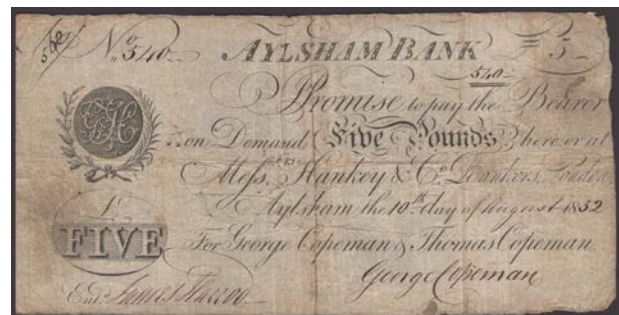 540
No 540 AYLSHAM BANK 5
540
I Promise to pay the Bearer
on Demand Five Pounds, here or at
Messrs Hankey & Co. Bankers, London
Aylsham the 10th day of August 1852
£
FIVE
For George Copeman & Thomas Copeman
George Copeman
Entd. James